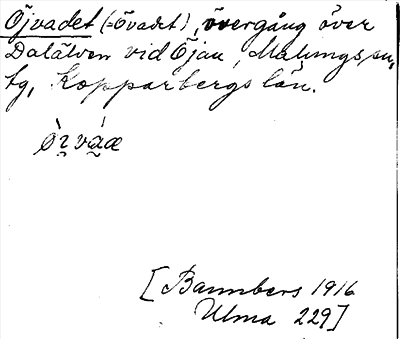 Öjvadet (-Övadet), övergång över
Dalälven vid Öjan, Malungs sn,
tg, Kopparbergs län.
[Bannbers 1916
Ulma 229]